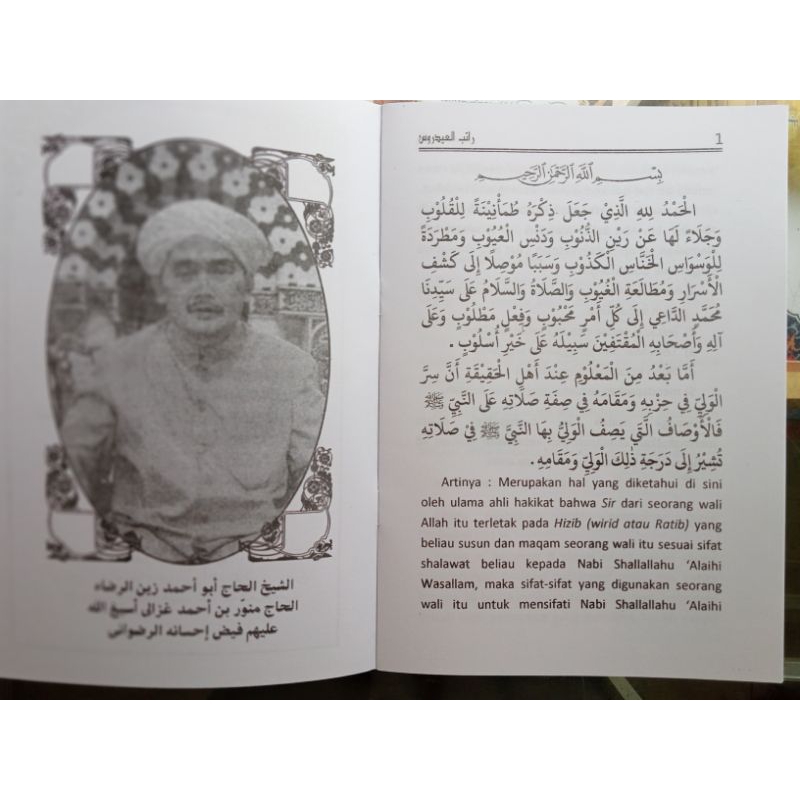 الشيخ الحاج أبو أحمد زين الرضاء
الحاج منوّر بن أحمد غزالى أسبغ الله
عليهم فيض إحسانه الرضوانى
راتب العيدروس
1
بِسْمِ اللَّهِ الرَّحْمَنِ الرَّحِيمِ
الْحَمْدُ لِلهِ الَّذِيْ جَعَلَ ذِكْرَهُ طُمَأْنِيْنَةً لِلْقُلُوْبِ
وَجَلَاءً لَهَا عَنْ رَيْنِ الذُّنُوْبِ وَدَنْسِ الْعُيُوْبِ وَمَطْرَدَةً
لِلْوَسْوَاسِ الْخَنَّاسِ الْكَذُوْبِ وَسَبَبًا مُوْصِلًا إِلَى كَشْفِ
الْأَسْرَارِ وَمُطَالَعَةِ الْغُيُوْبِ وَالصَّلَاةُ وَالسَّلَامُ عَلَى سَيِّدِنَا
مُحَمَّدٍ الدَّاعِي إِلَى كُلِّ أَمْرٍ مَحْبُوْبٍ وَفِعْلٍ مَطْلُوْبٍ وَعَلَى
آلِهِ وَأَصْحَابِهِ الْمُقْتَفِيْنَ سَبِيْلَهُ عَلَى خَيْرِ أُسْلُوْبٍ .
أَمَّا بَعْدُ مِنَ الْمَعْلُوْمِ عِنْدَ أَهْلِ الْحَقِيْقَةِ أَنَّ سِرَّ
الْوَلِيِّ فِي حِزْبِهِ وَمَقَامَهُ فِي صِفَةِ صَلَاتِهِ عَلَى النَّبِيِّ ﷺ
فَالْأَوْصَافُ الَّتِي يَصِفُ الْوَلِيُّ بِهَا النَّبِيَّ ﷺ فِيْ صَلَاتِهِ
تُشِيْرُ إِلَى دَرَجَةِ ذَلِكَ الْوَلِيِّ وَمَقَامِهِ .
Artinya : Merupakan hal yang diketahui di sini
oleh ulama ahli hakikat bahwa Sir dari seorang wali
Allah itu terletak pada Hizib (wirid atau Ratib) yang
beliau susun dan maqam seorang wali itu sesuai sifat
shalawat beliau kepada Nabi Shallallahu ‘Alaihi
Wasallam, maka sifat-sifat yang digunakan seorang
wali itu untuk mensifati Nabi Shallallahu ‘Alaihi